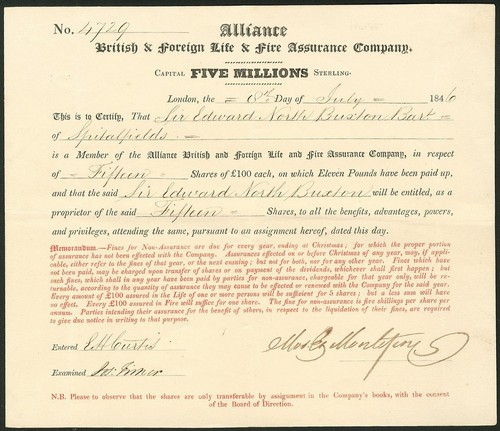 No. 4729
Alliance
British & Foreign Life & Fire Assurance Company.
Capital FIVE MILLIONS Sterling.
London, the = 18th Day of July = 1846
This is to Certify, That Sir Edward North Buxton Bart
of Spitalfields
is a Member of the Alliance British and Foreign Life and Fire Assurance Company, in respect
of Fifteen Shares of £100 each, on which Eleven Pounds have been paid up,
and that the said Sir Edward North Buxton will be entitled, as a
proprietor of the said Fifteen Shares, to all the benefits, advantages, powers,
and privileges, attending the same, pursuant to an assignment hereof, dated this day.
Memorandum.—Fines for Non-Assurance are due for every year, ending at Christmas; for which the proper portion
of assurance has not been effected with the Company. Assurances effected on or before Christmas of any year, may, if appli-
cable, either refer to the fines of that year, or the next ensuing; but not for both, nor for any other year. Fines which have
not been paid, may be charged upon transfer of shares or on payment of the dividends, whichever shall first happen; but
such fines, which shall in any year have been paid by parties for non-assurance, chargeable for that year only, will be re-
turnable, according to the quantity of assurance they may cause to be effected or renewed with the Company for the said year.
Every amount of £100 assured in the Life of one or more persons will be sufficient for 5 shares; but a less sum will have
no effect. Every £100 assured in Fire will suffice for one share. The fine for non-assurance is five shillings per share per
annum. Parties intending their assurance for the benefit of others, in respect to the liquidation of their fines, are required
to give due notice in writing to that purpose.
Entered E. H. Curtis
Moses Montefiore
Examined
N.B. Please to observe that the shares are only transferable by assignment in the Company's books, with the consent
of the Board of Direction.